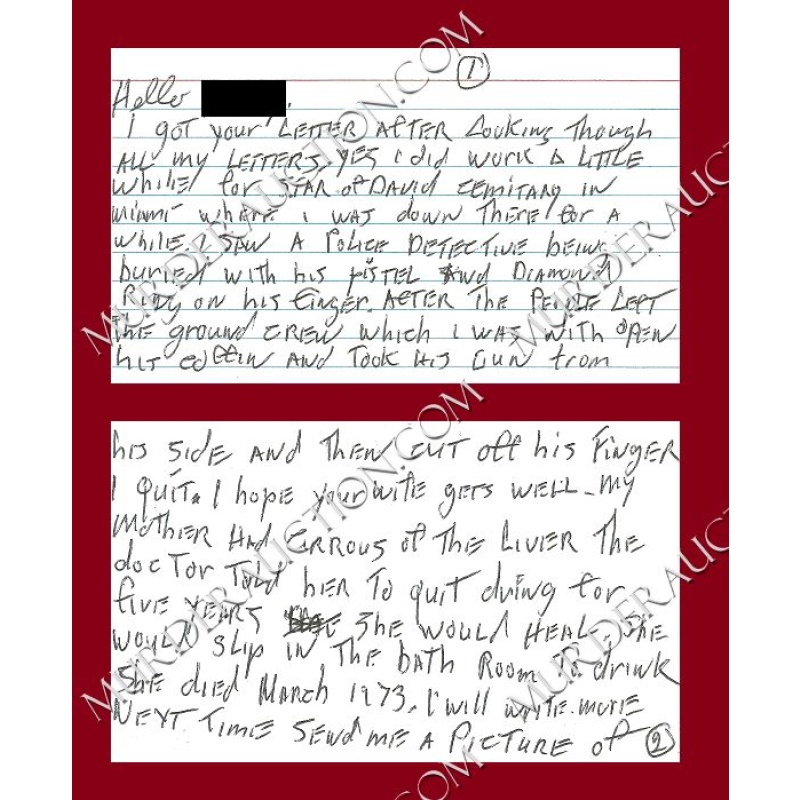 ①
Hello
I got your LETTER AFTER Looking Though
ALL my LETTERS. YES i did work a LITTLE
while for STAR of DAVID CEMITARY IN
Miami where i was down There for a
while. I saw A Police DETECTIVE being
buried with his PISTEL And Diamond
Ring on his finger. AFTER The People LEFT
The ground CREW which i was with OPEN
his coffin AND Took His Gun from
his side AND Then CUT off his FINGER
I Quit. I hope your wife gets WELL - my
MOTHER HAd CIRROUS of The LIVER The
docTor Told her To quit dring for
five YEARS She would HEAL. She
would slip in The bath Room To drink
She died March 1973. I will write more
NEXT Time Send me A PICTURE of ②
MURDERAUCTION.COM